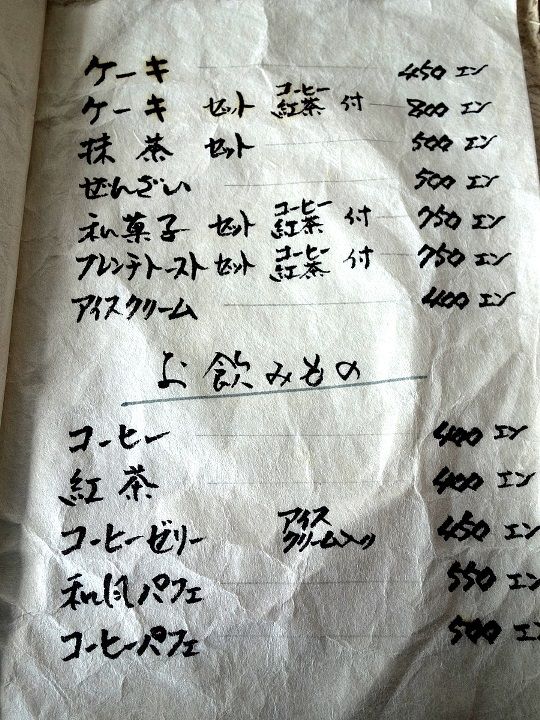 ケーキ 450エン
ケーキ セット コーヒー 紅茶 付 800エン
抹茶 セット 500エン
ぜんざい 500エン
和菓子 セット コーヒー 紅茶 付 750エン
フレンチトースト セット コーヒー 紅茶 付 750エン
アイスクリーム 400エン
お飲みもの
コーヒー 400エン
紅茶 400エン
コーヒーゼリー アイスクリーム入り 450エン
和風パフェ 550エン
コーヒーパフェ 500エン